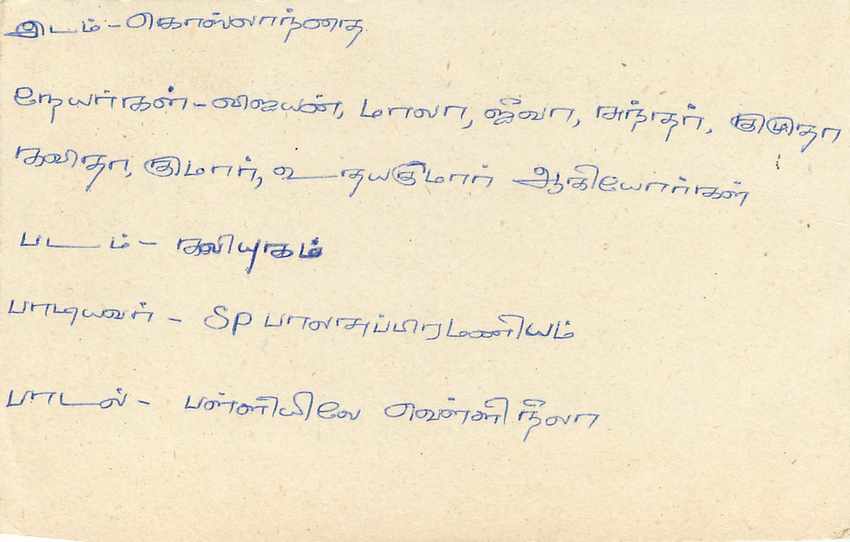 இடம் - கொஸ்லாந்தை
நேயர்கள் - விஜயன், மாலா, ஜீவா, சுந்தர், குமுதா
கவிதா, குமார், உதயகுமார் ஆகியோர்கள்
படம் - கலியுகம்
பாடியவர் - SP பாலசுப்பிரமணியம்
பாடல் - பள்ளியிலே வெள்ளி நிலா